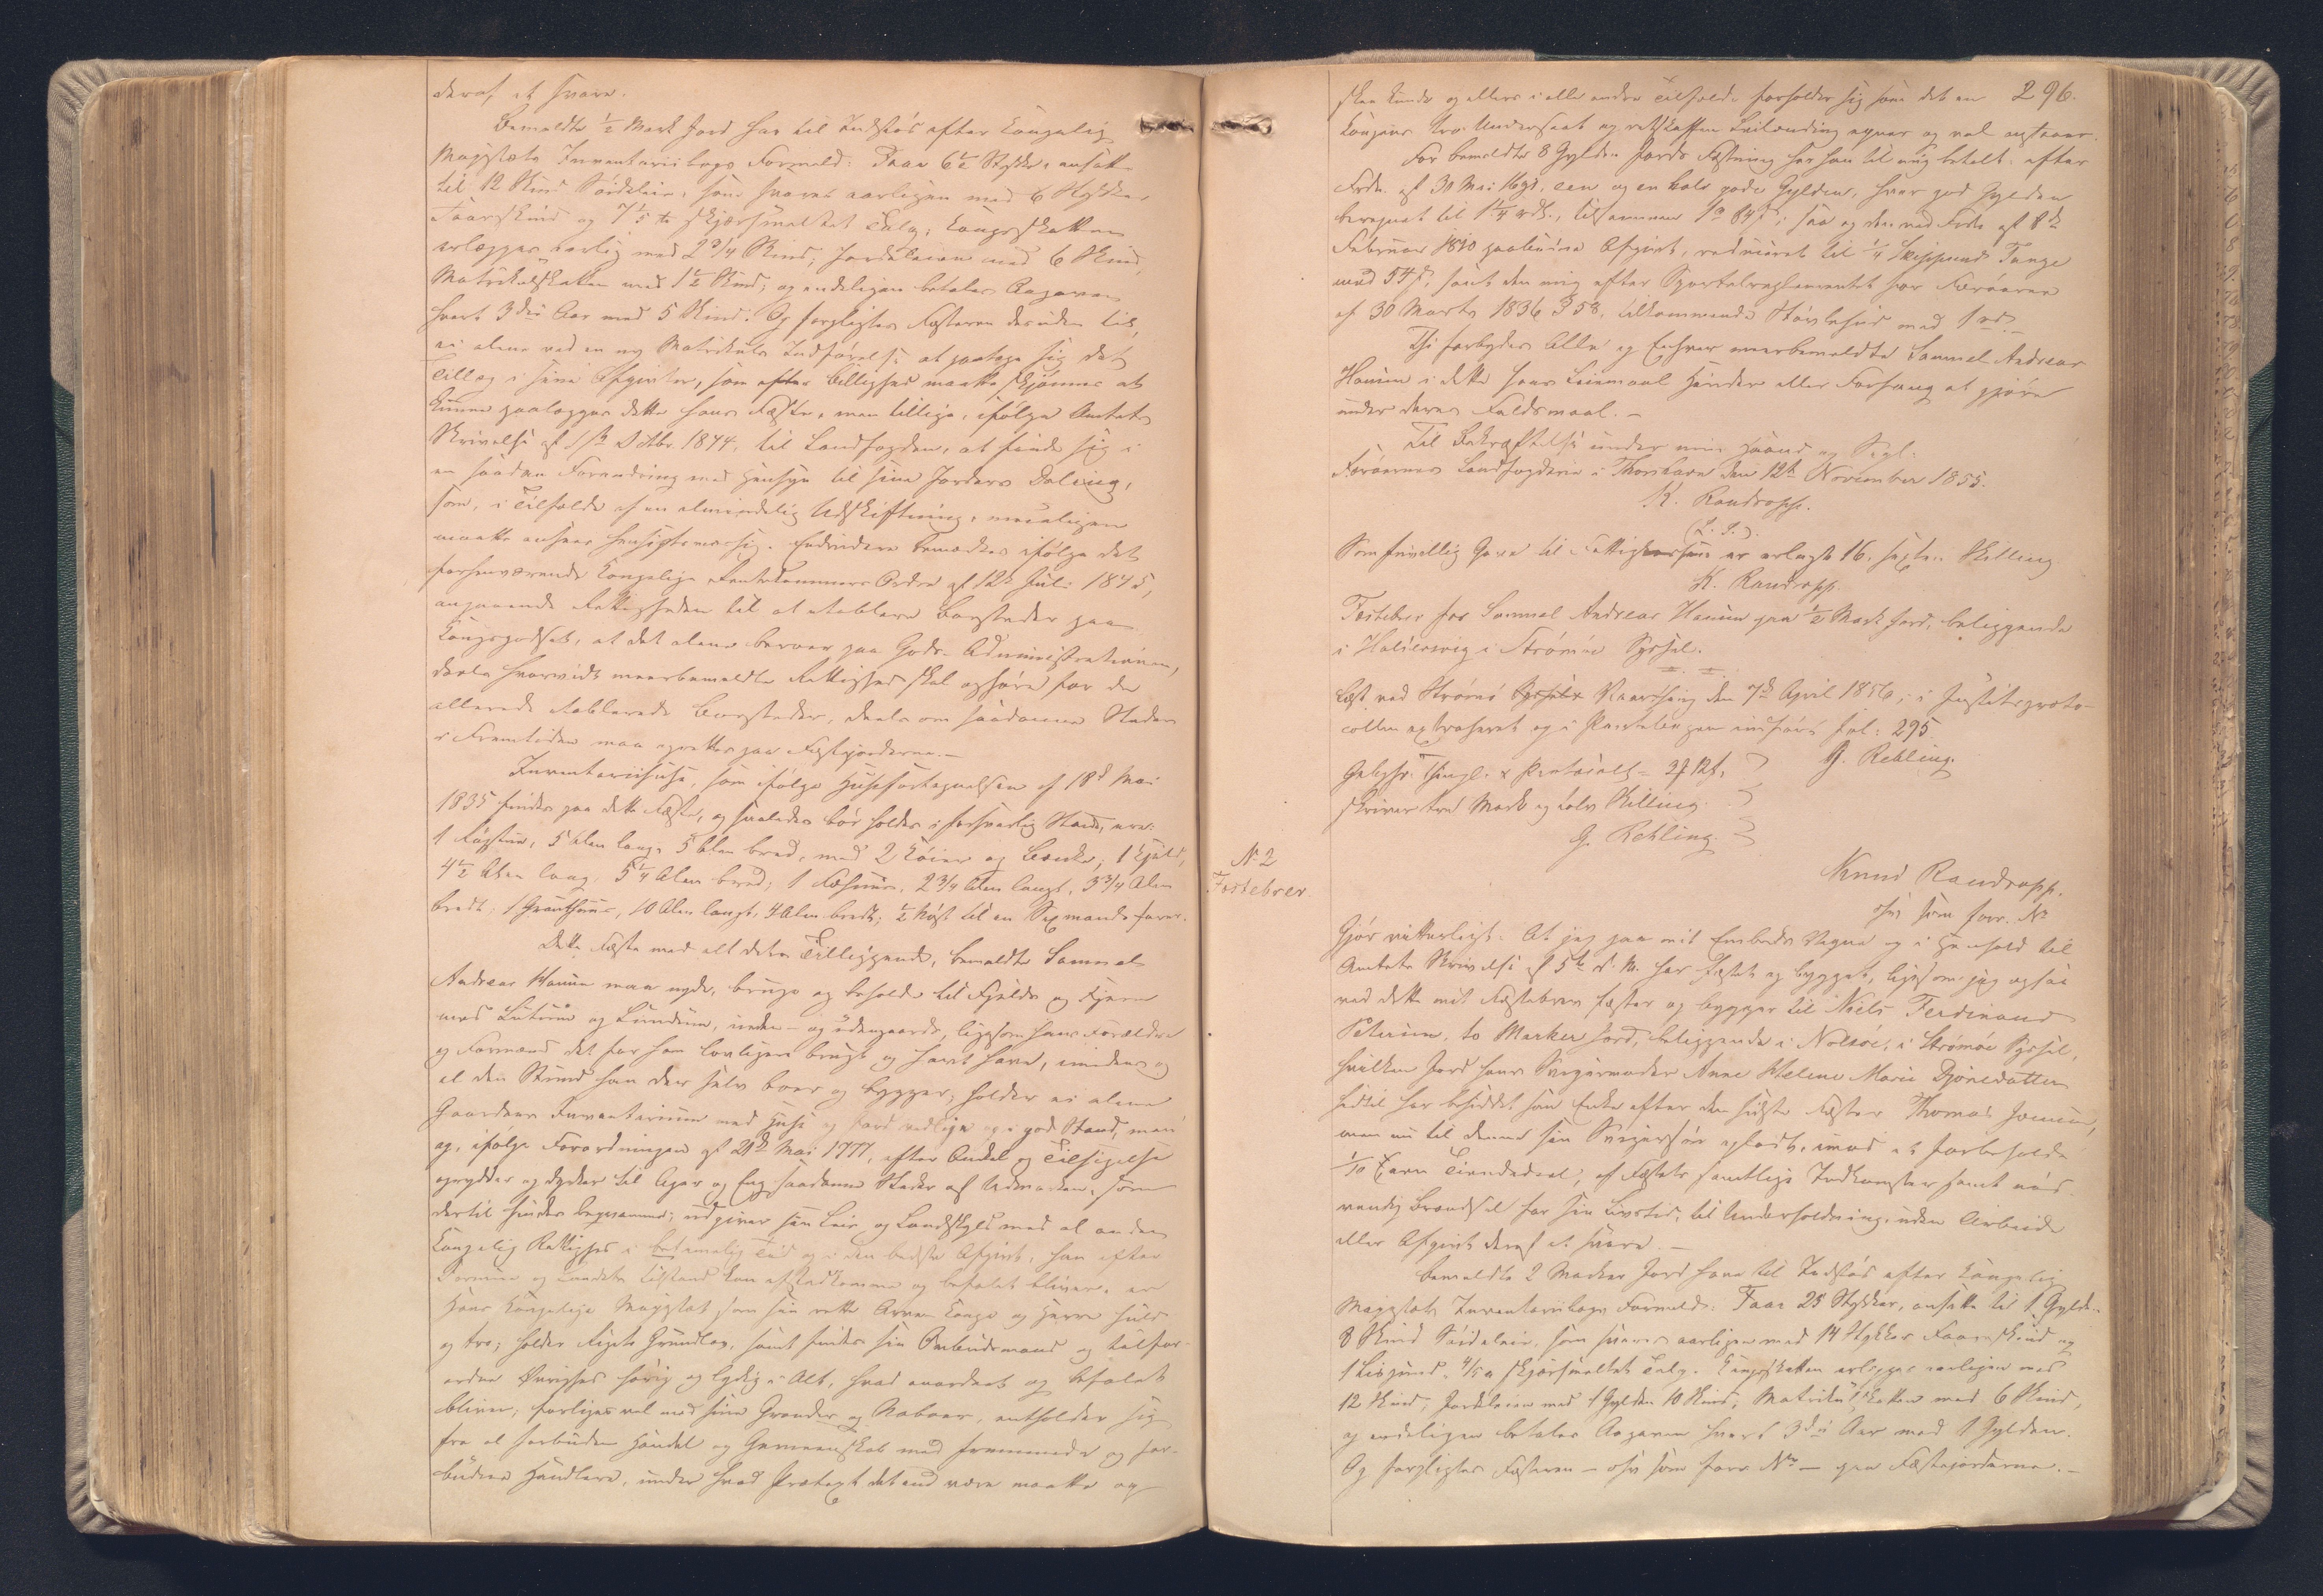 deraf at svare.
Bemeldte 1/2 Mark Jord har til Indstøs efter Kongelig
Majestæts Inventariibogs Formeld: Faar 6 1/2 Stykker, ansatte
til 12 Skind Søideleie, som svares aarligen med 6 Stykker
Faarskind og 7 1/5 ℔ skjærsmeltet Talg; Kongsskatten
erlægges aarlig med 2 3/4 Skind; Jordeleien med 6 Skind,
Matrikulskatten med 1 1/2 Skind; og endeligen betales Aagaven
hvert 3die Aar med 5 Skind. Og forpligtes Fæsteren desuden til,
ei alene ved en ny Matrikuls Indførelse at paatage sig det
Tillæg i sine Afgivter, som efter Billighed maatte skjønnes at
kunne paalægges dette hans Fæste, men tillige, ifølge Amtets
Skrivelse af 1ste Octbr. 1844, til Landfogden, at finde sig i
en saadan Forandring med Hensyn til sine Jorders Deling,
som, i Tilfælde af en almindelig Udskiftning, muligen
maatte ansees hensigtsmæssig. Endvidere bemærkes ifølge det
forhenværende Kongelige Rentekammers Ordre af 12te Juli 1845,
angaaende Rettigheden til at etablere Bosteder paa
Kongsgodset, at det alene beroer paa Gods-Administrationen,
deels hvorvidt meerbemeldte Rettighed skal ophøre for de
allerede etablerede Bosteder, deels om saadanne Steder
i Fremtiden maa oprettes paa Fæstejorderne.—
Inventariihuse, som ifølge Husefortegnelsen af 18de Mai
1835 findes paa dette Fæste, og saaledes bør holdes i forsvarlig Stand, ere:
1 Røgstue, 5 Alen lang, 5 Alen bred, med 2 Køier og Bænke; 1 Hjald,
4 1/2 Alen lang, 5 1/4 Alen bred; 1 Fæhuus, 2 3/4 Alen langt, 3 3/4 Alen
bredt; 1 Grauthuus, 10 Alen langt, 4 Alen bredt; 1/2 Nøst til en Sexmandsfarer.
Dette Fæste med alt dets Tilliggende, bemeldte Samuel
Andreas Hansen maa nyde, bruge og beholde til Fjelds og Fjære
med Luttum og Lundum, inden- og udengaards, ligesom hans Forældre
og Formænd det før ham lovligen brugt og havt have, imedens og
al den Stund han der selv boer og bygger, holder ei alene
Gaardens Inventarium med Huse og Jord vedlige og i god Stand, men
og, ifølge Forordningen af 21de Mai 1777, efter Andel og Tilsigelse
oprydder og dyrker til Ager og Eng saadanne Steder af Udmarken, som
dertil findes beqvemmest; udgiver sin Leie og Landskyld med al anden
Kongelig Rettighed i betimelig Tid og i den bedste Afgivt, han efter
Termin og Landets Tilstand kan afstedkomme og befalet bliver, er
Hans Kongelige Majestæt som sin rette Arve-Konge og Herre huld
og tro; holder Rigets Grundlov, samt findes sin Ombudsmand og tilfor-
ordnede Øvrighed hørig og lydig i Alt, hvad anordnet og befalet
bliver; forliges vel med sine Grander og Naboer, entholder sig
fra al forbuden Handel og Gemeenskab med fremmede og for-
budne Handlere, under hvad Prætext det end være maatte og
296.
skee kunde og ellers i alle andre Tilfælde forholder sig som det en
Kongens tro Undersaat og retskaffen Leilænding egner og vel anstaaer.
For bemeldte 8 Gylden Jords Fæstning har han til mig betalt efter
Frdn. af 30 Mai 1691, een og en halv gode Gylden, hver god Gylden
beregnet til 1 1/4 rdlr., tilsammen 1 rd 84 ß; saa og den ved Frdn. af 8de
Februar 1810 paabudne Afgivt, reduceret til 1/4 Skippund Tunge
med 54 ß, samt den mig efter Sportelreglementet for Færøerne
af 30 Marts 1836 § 58, tilkommende Støvlehud med 1 rd.—
Thi forbydes Alle og Enhver meerbemeldte Samuel Andreas
Hansen i dette hans Leiemaal Hinder eller Forfang at gjøre
under deres Faldsmaal.—
Til Bekræftelse under min Haand og Segl.
Færøernes Landfogderie i Thorshavn den 12te November 1855.
K. Randropp.
(L. S.)
Som frivillig Gave til Fattigvæsenet er erlagt 16, sexten Skilling.
K. Randropp.
Fæstebrev for Samuel Andreas Hansen paa 1/2 Mark Jord, beliggende
i Haldersvig i Strømøe Syssel.
Læst ved Strømø Syssels Vaarthing den 7de April 1856; i Justitsproto-
collen extraheret og i Pantebogen indført fol: 295.
G. Rehling.
Gebyhr: Thingl. & Protocoll = 2 ℳ 12 ß,
skriver tvende Mark og tolv Skilling.
G. Rehling.
№ 2
Fæstebrev
Knud Randropp.
osv. som forr. №
Gjør vitterligt: At jeg paa mit Embeds Vegne og i Henhold til
Amtets Skrivelse af 5te d. M. har fæstet og bygget, ligesom jeg ogsaa
ved dette mit Fæstebrev fæster og bygger til Niels Ferdinand
Petersen, to Marker Jord, beliggende i Nolsøe, i Strømøe Syssel,
hvilken Jord hans Svigermoder Anne Helene Marie Djonedatter
hidtil har besiddet som Enke efter den sidste Fæster Thomas Joensen,
men nu til denne sin Svigersøn opladt, imod at forbeholde
1/10 Part Tiendedeel, af Fæstets samtlige Indkomster samt nød-
vendig Brændsel for sin Livstid, til Underholdning, uden Arbeide
eller Afgivt deraf at svare.—
Bemeldte 2 Marker Jord have til Indstøs efter Kongelig
Majestæts Inventariibogs Formeld: Faar 25 Stykker, ansatte til 1 Gylden
8 Skind Søideleie, som svares aarligen med 14 Stykker Faareskind og
1 Lispund, 4/5 ℔ skjærsmeltet Talg. Kongsskatten erlægges aarligen med
12 Skind; Jordeleien med 1 Gylden 10 Skind, Matrikulskatten med 6 Skind,
og endeligen betales Aagaven hvert 3die Aar med 1 Gylden.
Og forpligtes Fæsteren — osv. som forr. № — paa Fæstejorderne.—